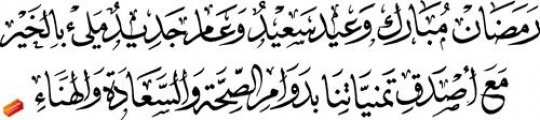 رَمَضَان مُبَارَك وَعِيد سَعِيدُ وَعَام جَدِيدُ مَلِىء بِالخَيْر
مَعَ أصْدَقِ تَمنيَاتِنَا بِدَوَامِ الصِّحَّة وَالسَّعَادَة وَالهَنَاءِ